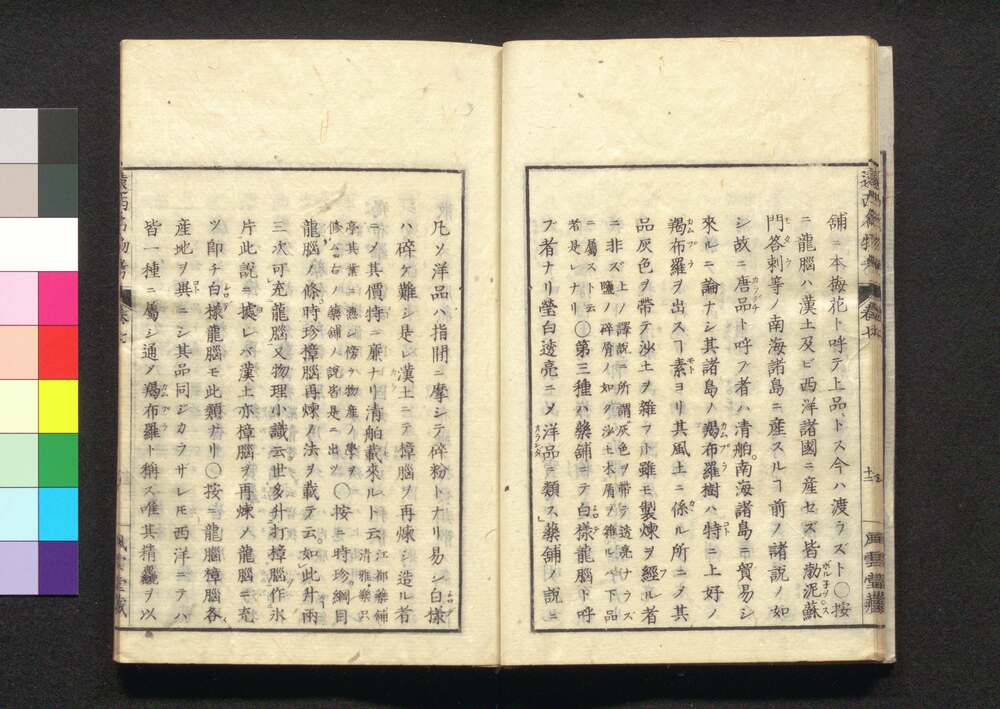 舗ニ本梅花ト呼テ上品トス今ハ渡ラズト〇按
ニ龍腦ハ漢土及ビ西洋諸國ニ産セズ皆渤泥蘇
門答剌等ノ南海諸島ニ産スルヿ前ノ諸説ノ如
シ故ニ唐品ト呼ブ者ハ清舶南海諸島ニ貿易シ
來ルニ論ナシ其諸島ノ羯布羅樹ハ特ニ上好ノ
羯布羅ヲ出スヿ素ヨリ其風土ニ係ル所ニ〆其
品灰色ヲ帶テ沙土ヲ雜フト雖モ製煉ヲ經ル者
ニ非ズ上ノ譯説ニ所謂灰色ヲ帶テ透亮ナラズ
鹽ノ碎屑ノ如ク沙土木屑ヲ雜ルベ下品
ニ屬スト云
者是レナリ〇第三種ハ藥舗ニテ白樣龍腦ト呼
ブ者ナリ瑩白透亮ニ〆洋品ニ類ス藥舗ノ説ニ
凡ソ洋品ハ指間ニ摩シテ碎粉トナリ易シ白樣
ハ碎ケ難シ是レ漢土ニテ樟腦ヲ再煉シ造ル者
ニ〆其價特ニ廉ナリ清舶載來ルト云江都藥舗
清雅藥沢
亭其業ニ熟シ傍ラ物産ノ學ヲ
修ム右ノ藥舗ノ説皆是ニ出ツ〇按ニ時珍綱目
龍腦ノ條ニ時珍樟腦再煉ノ法ヲ載テ云如此升兩
三次可充龍腦又物理小識云世多升打樟腦作氷
片此説ニ據レバ漢土亦樟腦ヲ再煉〆龍腦ニ充
ツ卽チ白樣龍腦モ此類ナリ〇按ニ龍腦樟腦各
産地ヲ異ニシ其品同ジカラサレ𪜈西洋ニテハ
皆一種ニ屬シ通〆羯布羅ト稱ス唯其精麤ヲ以